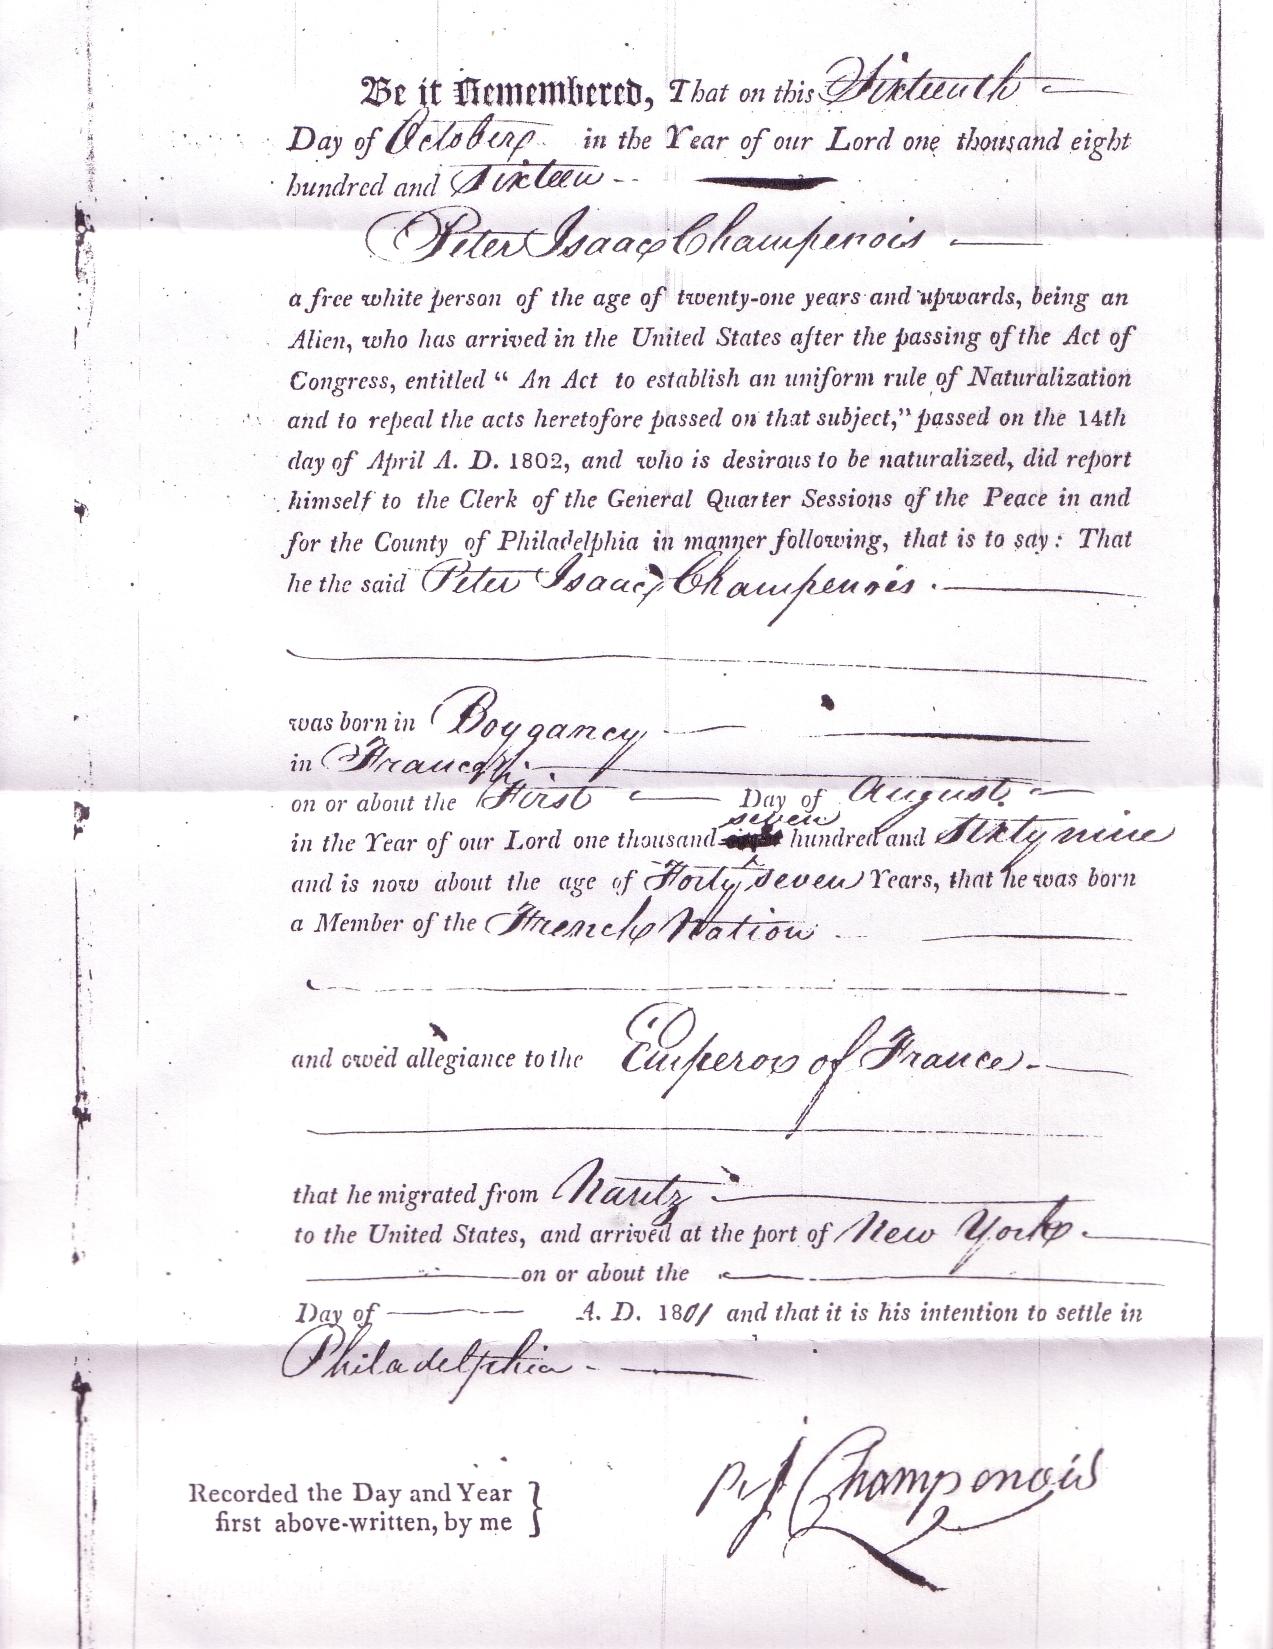 Be it Remembered, That on this Sixteenth
Day of October in the Year of our Lord one thousand eight
hundred and Sixteen
Peter Isaac Champenois
a free white person of the age of twenty-one years and upwards, being an
Alien, who has arrived in the United States after the passing of the Act of
Congress, entitled “ An Act to establish an uniform rule of Naturalization
and to repeal the acts heretofore passed on that subject,” passed on the 14th
day of April A. D. 1802, and who is desirous to be naturalized, did report
himself to the Clerk of the General Quarter Sessions of the Peace in and
for the County of Philadelphia in manner following, that is to say: That
he the said Peter Isaac Champenois.
was born in Boygancy
in France
on or about the First Day of August
in the Year of our Lord one thousand seven hundred and sixty nine
and is now about the age of Forty seven Years, that he was born
a Member of the French Nation
and owed allegiance to the Emperor of France
that he migrated from Nantz
to the United States, and arrived at the port of New York
on or about the
Day of A. D. 1801 and that it is his intention to settle in
Philadelphia
P. J Champenois
Recorded the Day and Year
first above-written, by me }